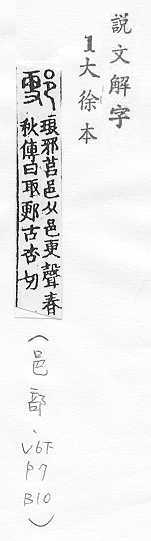 説文解字
1大徐本
琅邪莒邑从邑更聲春
秋傳曰取郠古杏切
（邑部．V6下 P7 B10）